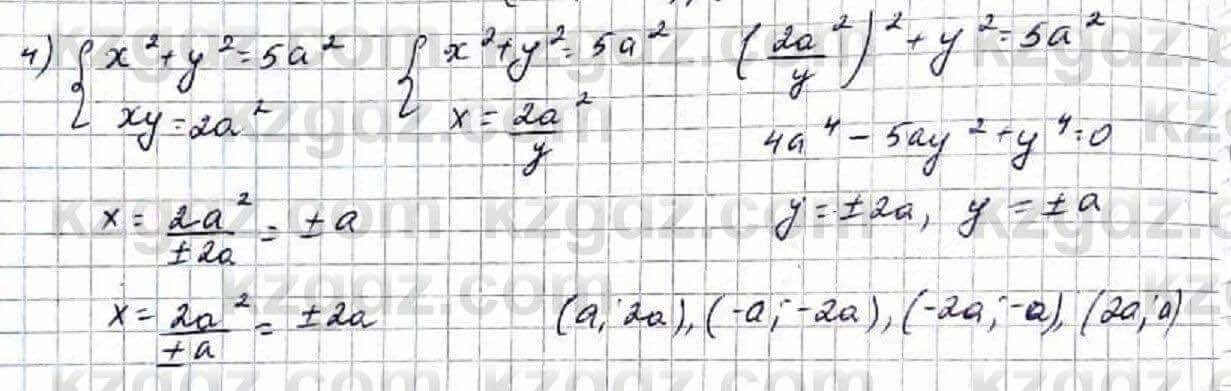 4) { x² + y² = 5a² { x² + y² = 5a² (2a²/y)² + y² = 5a²
xy = 2a² x = 2a²/y 4a⁴ - 5ay² + y⁴ = 0
x = 2a²/±2a = ±a y = ±2a, y = ±a
x = 2a²/±a = ±2a (a; 2a), (-a; -2a), (-2a; -a), (2a; a)
kzgdz.com